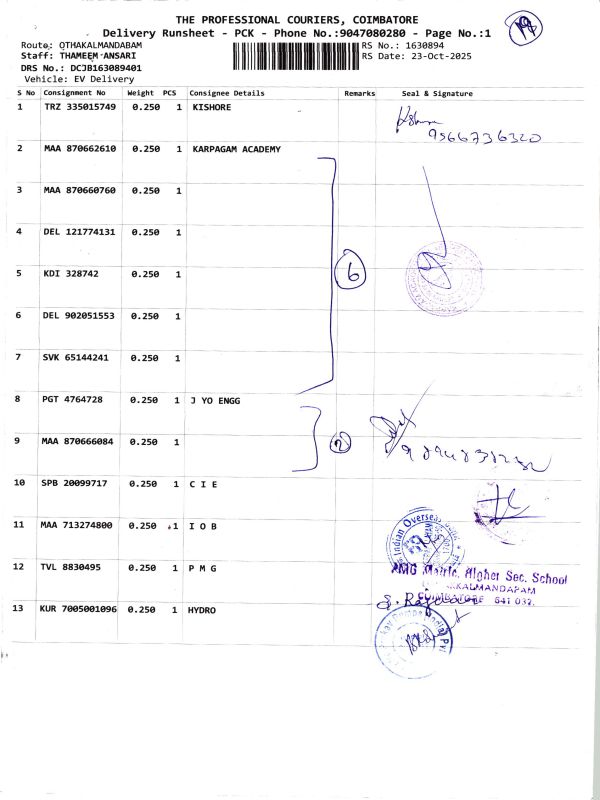 THE PROFESSIONAL COURIERS, COIMBATORE
Delivery Runsheet - PCK - Phone No.:9047080280 - Page No.:1
Route: OTHAKALMANDABAM
RS No.: 1630894
Staff: THAMEEM ANSARI
RS Date: 23-Oct-2025
DRS No.: DCJB163089401
Vehicle: EV Delivery
S No Consignment No Weight PCS Consignee Details Remarks Seal & Signature
1 TRZ 335015749 0.250 1 KISHORE
9566736320
2 MAA 870662610 0.250 1 KARPAGAM ACADEMY
3 MAA 870660760 0.250 1
4 DEL 121774131 0.250 1
5 KDI 328742 0.250 1
6
6 DEL 902051553 0.250 1
7 SVK 65144241 0.250 1
8 PGT 4764728 0.250 1 J YO ENGG
9 MAA 870666084 0.250 1
2
10 SPB 20099717 0.250 1 C I E
11 MAA 713274800 0.250 1 I O B
Indian Overseas Bank
12 TVL 8830495 0.250 1 P M G
PMG Matric. Higher Sec. School
COIMBATORE 641 032.
13 KUR 7005001096 0.250 1 HYDRO